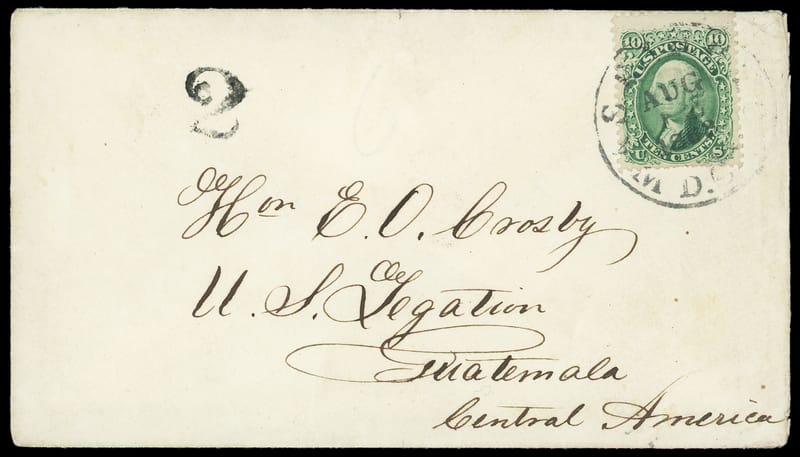 10 10
U.S. POSTAGE
AUG
TEN CENTS.
U S
D.C.
2
Hon E. O. Crosby
U. S. Legation
Guatemala
Central America